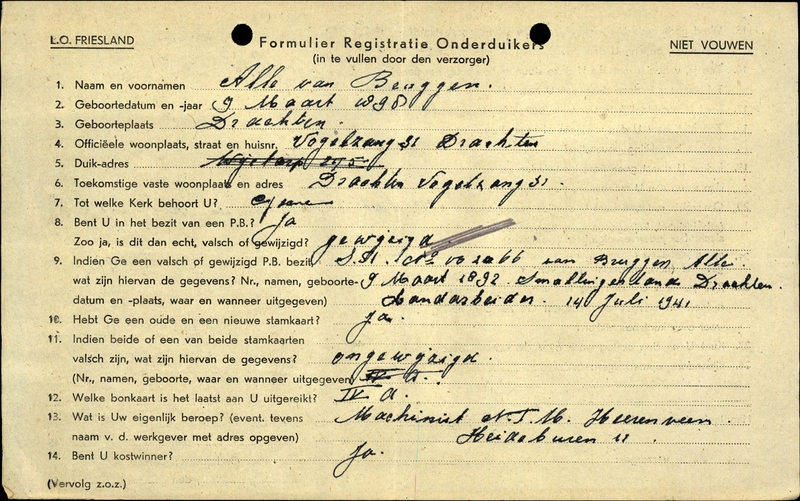 L.O. FRIESLAND
Formulier Registratie Onderduikers
NIET VOUWEN
(in te vullen door den verzorger)
1. Naam en voornamen Alle van Bruggen.
2. Geboortedatum en -jaar 9 Maart 1898
3. Geboorteplaats Drachten.
4. Officiëele woonplaats, straat en huisnr. Vogelzang 31 Drachten
5. Duik-adres
6. Toekomstige vaste woonplaats en adres Drachten Vogelzang 31.
7. Tot welke Kerk behoort U? Geene
8. Bent U in het bezit van een P.B.? Ja
Zoo ja, is dit dan echt, valsch of gewijzigd? gewijzigd
9. Indien Ge een valsch of gewijzigd P.B. bezit, S.M. No van Bruggen, Alle.
wat zijn hiervan de gegevens? Nr., namen, geboorte- 9 Maart 1892 Smallingerland Drachten.
datum en -plaats, waar en wanneer uitgegeven) Landarbeider. 14 Juli 1941
10. Hebt Ge een oude en een nieuwe stamkaart? Ja.
11. Indien beide of een van beide stamkaarten
valsch zijn, wat zijn hiervan de gegevens? ongewijzigd.
(Nr., namen, geboorte, waar en wanneer uitgegeven)
12. Welke bonkaart is het laatst aan U uitgereikt? IV A.
13. Wat is Uw eigenlijk beroep? (event. tevens Machinist N.T.M. Heerenveen
naam v. d. werkgever met adres opgeven) Heideburen 11
14. Bent U kostwinner? Ja.
(Vervolg z.o.z.)